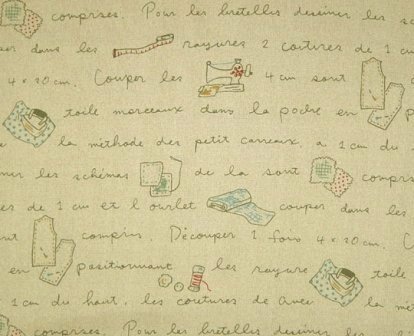 comprises. Pour les bretelles dessiner les so
per dans les rayures 2 coutures de 1 cm
4 x 20 cm. Couper les 4 cm sont
toile morceaux dans la poche en p
la méthode des petit carreaux, a 1 cm du
ner les schémas de la sont compris
es de 1 cm et l'ourlet couper dans les
ut compris. Découper 1 fois 4 x 20 cm. C
en positionnant les rayure toile
1 cm du haut, les coutures de avec la mét
comprises. Pour les bretelles dessiner les